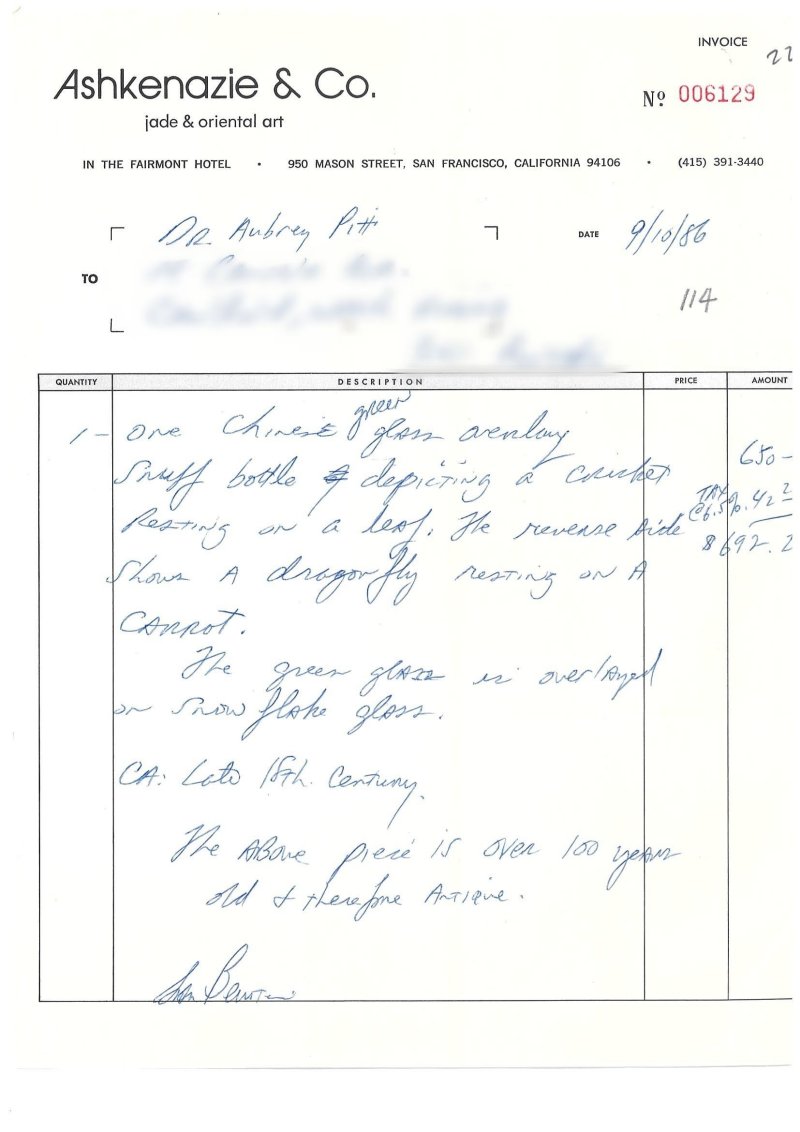 INVOICE
22
Ashkenazie & Co.
jade & oriental art
Nº 006129
IN THE FAIRMONT HOTEL • 950 MASON STREET, SAN FRANCISCO, CALIFORNIA 94106 • (415) 391-3440
TO
Dr Aubrey Pitt
DATE 9/10/86
114
QUANTITY DESCRIPTION PRICE AMOUNT
1 - One Chinese green glass overlay
Snuff bottle depicting a cricket
Resting on a leaf. The reverse side
Shows A dragonfly resting on A
CARROT.
The green glass is overlayed
on snow flake glass.
CA: Late 18th. Century.
The Above piece is over 100 years
old & therefore Antique.
650-
TAX
@6.5%. 42 2
$692.2